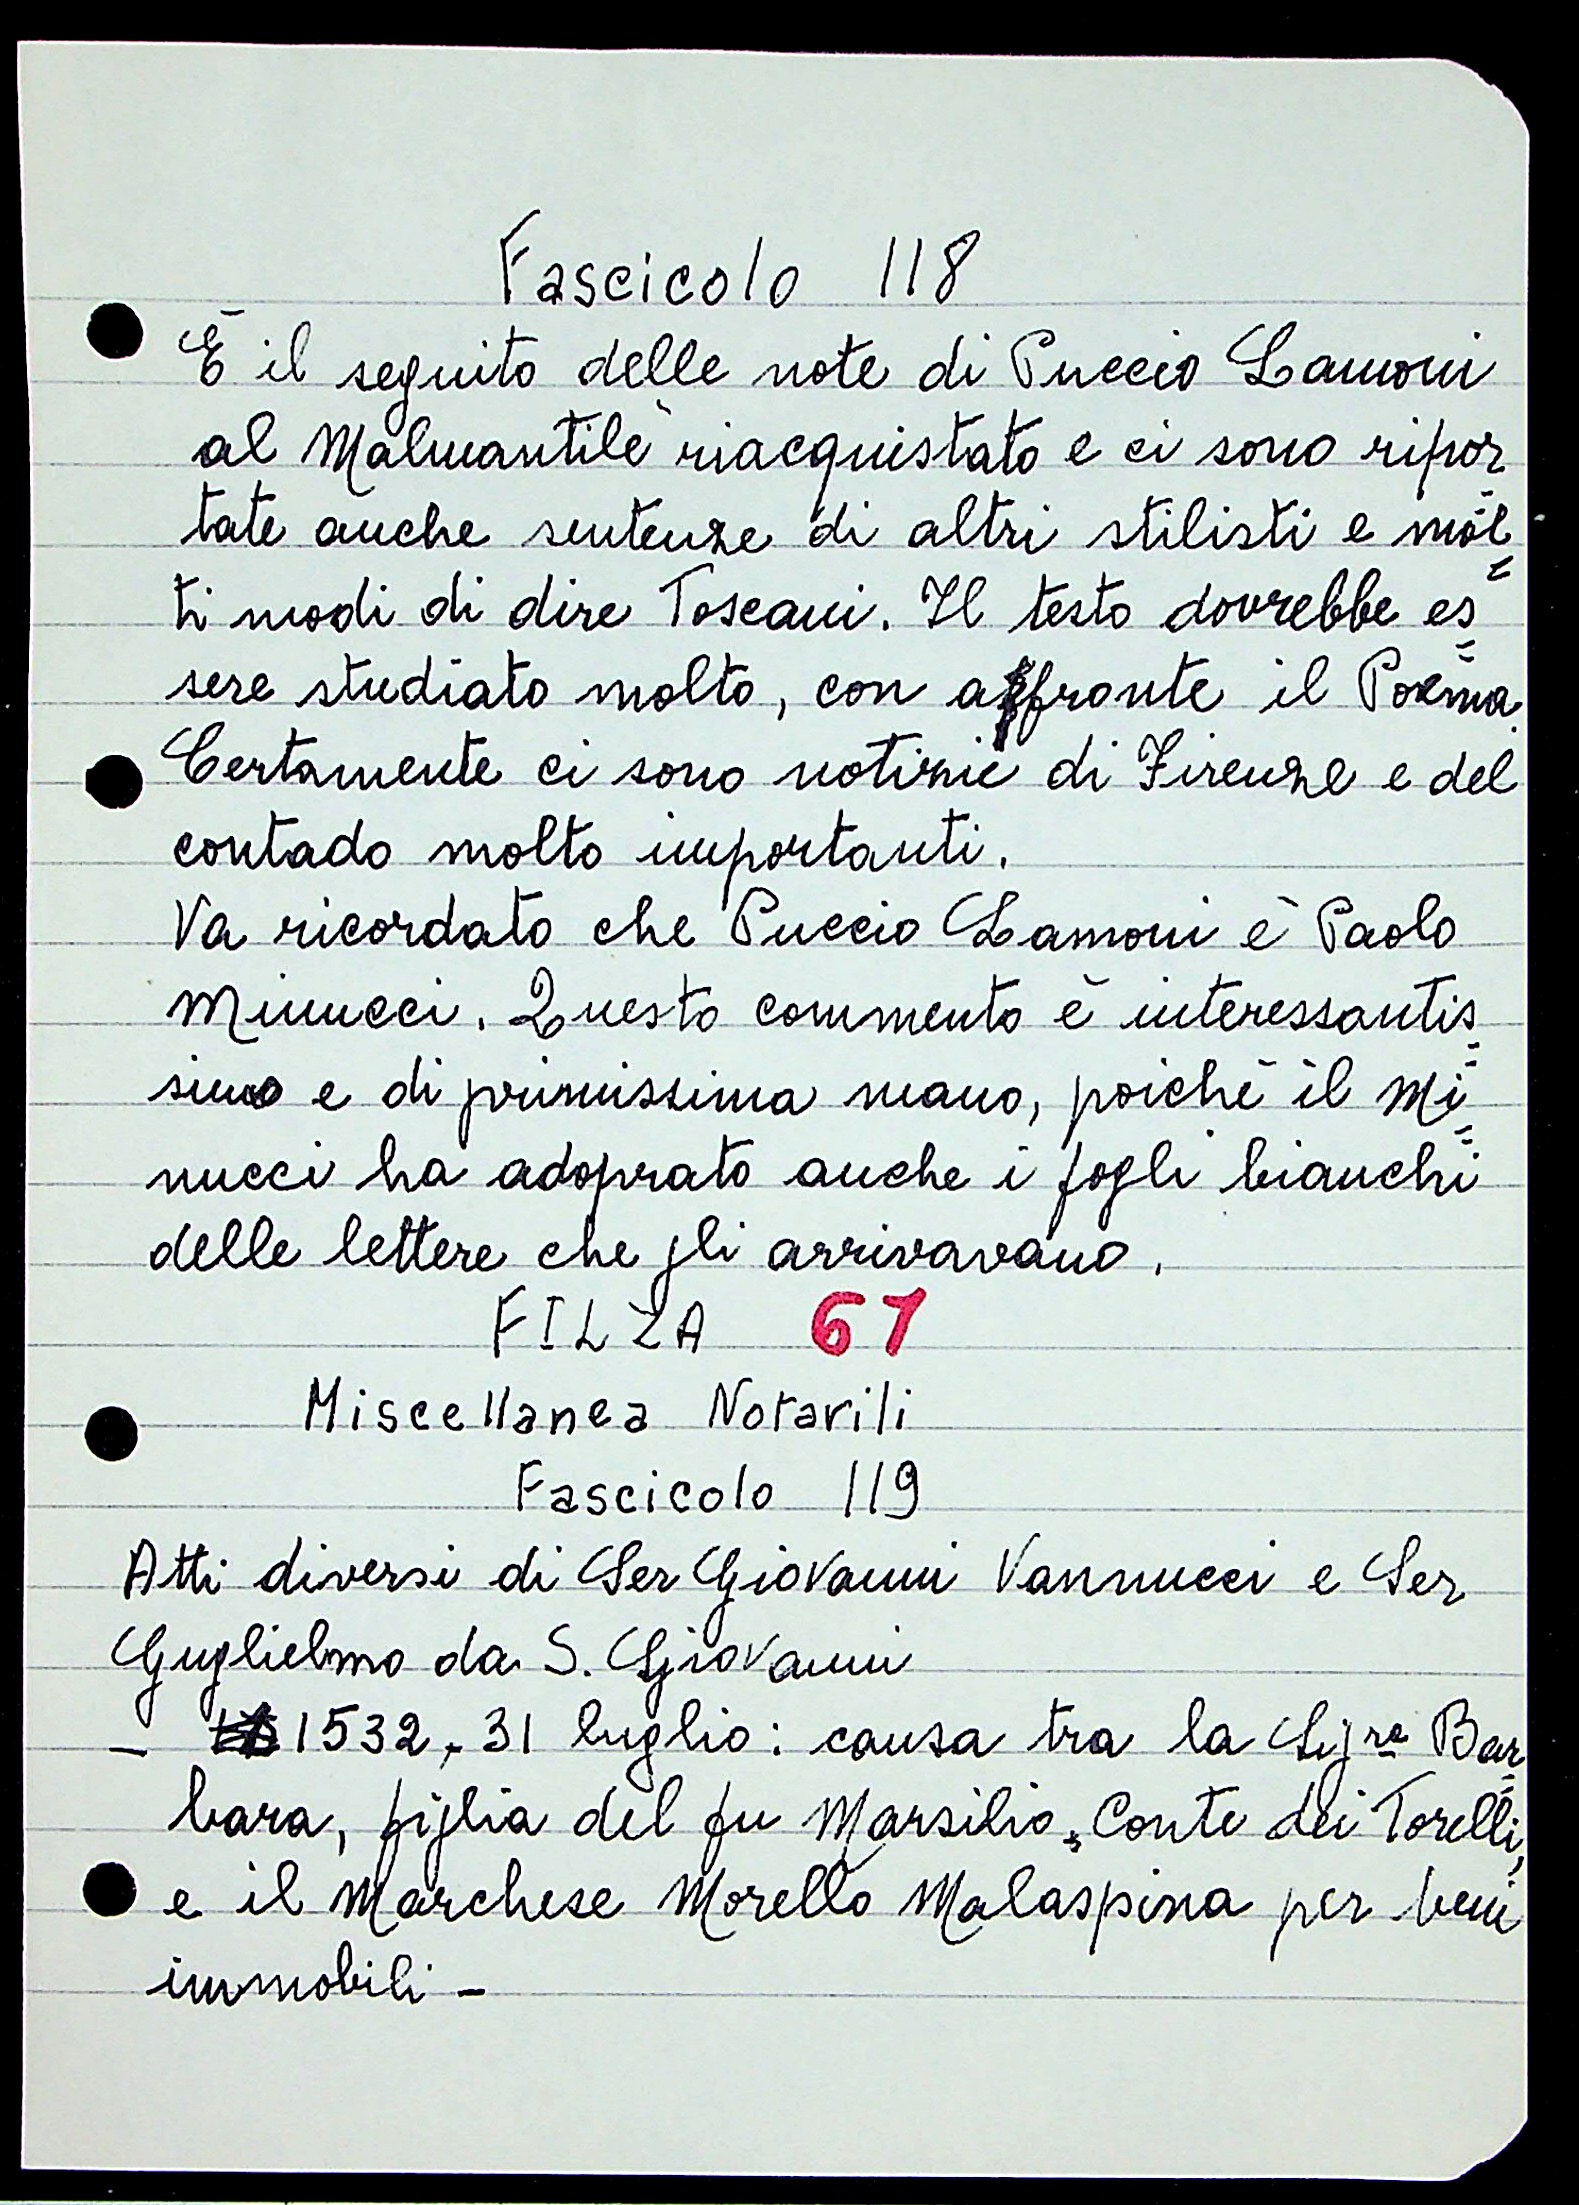 Fascicolo 118
È il seguito delle note di Puccio Lamoni
al Malmantile riacquistato e ci sono ripor
tate anche sentenze di altri stilisti e mol
ti modi di dire Toscani. Il testo dovrebbe es
sere studiato molto, con affronte il Poema.
Certamente ci sono notizie di Firenze e del
contado molto importanti.
Va ricordato che Puccio Lamoni è Paolo
Minucci. Questo commento è interessantis
simo e di primissima mano, poiché il Mi
nucci ha adoprato anche i fogli bianchi
delle lettere che gli arrivavano.
FILZA 61
Miscellanea Notarili
Fascicolo 119
Atti diversi di Ser Giovanni Vannucci e Ser
Guglielmo da S. Giovanni
- 1532, 31 luglio: causa tra la Sig.ra Bar
bara, figlia del fu Marsilio, Conte dei Torelli,
e il Marchese Morello Malaspina per beni
immobili -